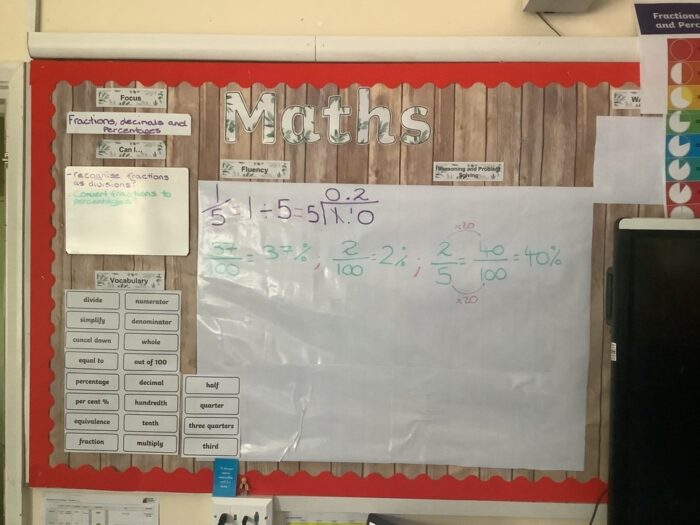 Fractions
and Perc
Maths
Focus
Fractions, decimals and
percentages
Can I...
- recognise fractions
as divisions?
- Convert fractions to
percentages?
Fluency
Reasoning and Problem
Solving
WA
1/5 = 1 ÷ 5 = 5 1.10 0.2
37/100 = 37% ; 2/100 = 2% ; 2/5 = 40/100 = 40%
x20
x20
Vocabulary
divide numerator
simplify denominator
cancel down whole
equal to out of 100
percentage decimal half
per cent % hundredth quarter
equivalence tenth three quarters
fraction multiply third